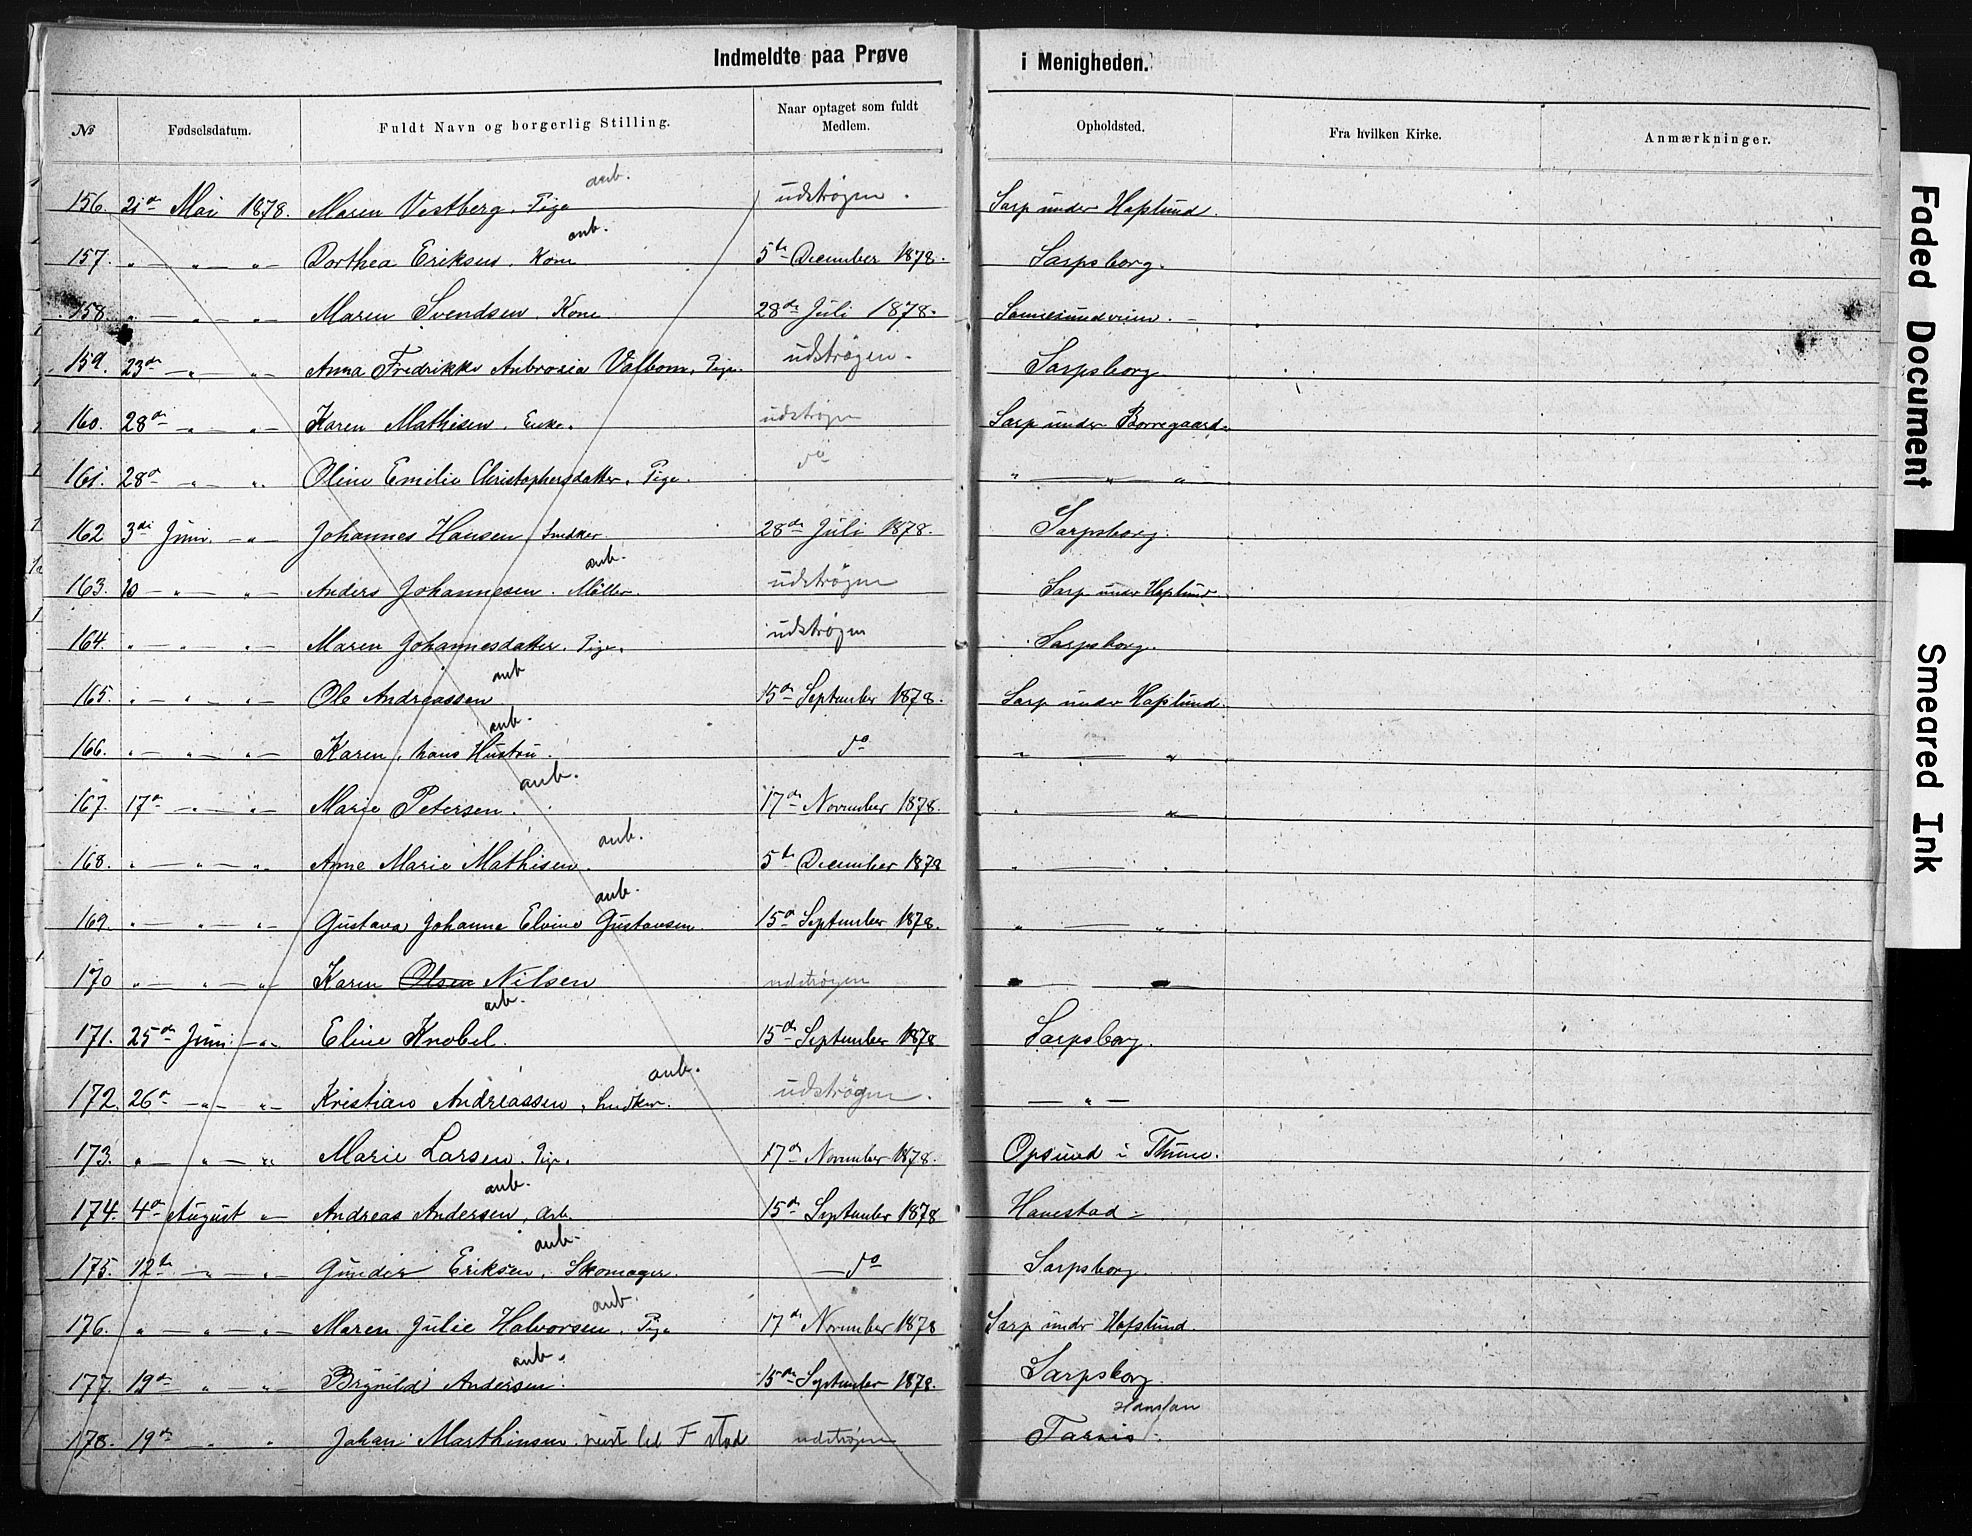 Indmeldte paa Prøve i Menigheden.
№ Fødselsdatum. Fuldt Navn og borgerlig Stilling. Naar optaget som fuldt Medlem. Opholdsted. Fra hvilken Kirke. Anmærkninger.
anb.
156. 21de Mai 1878. Maren Vestberg. Pige udstrøgen. Sarp under Haflund.
anb.
157. " — " — " — Dorthea Eriksen. Kone 5te December 1878. Sarpsborg.
158. " — " — " — Maren Svendsen. Kone. 28de Juli 1878. Sannesundveien. —
159. 23de — " — " — Anna Fredrikke Anbrosia Valbom, Pige. udstrøgen. Sarpsborg
160. 28de — " — " — Karen Mathisen. Enke. udstrøgen Sarp under Borregaard.
161. 28de — " — " — Oline Emilie Christophersdatter. Pige. do " — " — " —
162 3die Juni. — " — Johannes Hansen, Snedker 28de Juli 1878. Sarpsborg.
anb.
163. " — " — " — Anders Johannesen. Møller. udstrøgen Sarp under Haflund.
164. " — " — " — Maren Johannesdatter. Pige. udstrøgen Sarpsborg.
anb
165. " — " — " — Ole Andreassen 15de September 1878. Sarp under Haflund.
anb.
166. " — " — " — Karen, hans Hustru. do " — "
anb.
167. 17de — " — " — Marie Petersen. 17de November 1878. " — "
anb.
168. " — " — " — Anne Marie Mathisen. 5te December 1878 " — "
anb.
169. " — " — " — Gustava Johanne Elvine Gustavsen 15de September 1878. " — "
170 " — " — " — Karen Olsen Nilsen udstrøgen " — "
anb.
171. 25de Juni — " — Eline Knobel. 15de September 1878 Sarpsborg.
anb.
172. 26de — " — " — Kristian Andreassen, Snedker. udstrøgen. — " —
173. " — " — " — Marie Larsen. Pige. 17de November 1878. Opsund i Thune.
anb.
174. 4de August " — Andreas Andersen, arb. 15de September 1878 Hanestad.
anb.
175. 12te — " — " — Gunder Eriksen, Skomager. — do Sarpsborg.
anb.
176. " — " — " — Maren Julie Halvorsen. Pige 17de November 1878 Sarp under Hafslund.
anb.
177. 19de " — " — Brynild Andersen. 15de September 1878. Sarpsborg.
178. 19de " " Johan Marthinsen F stad udstrøgen
Faded Document
Smeared Ink